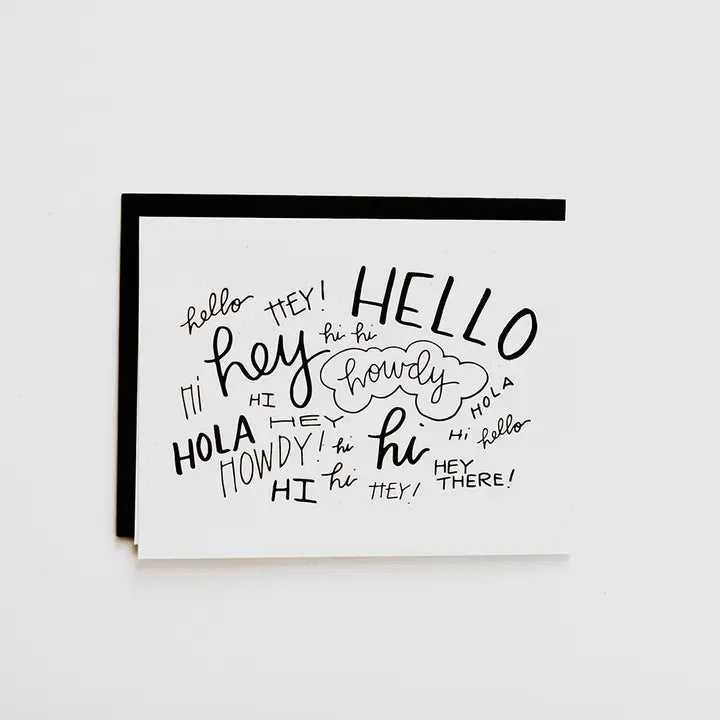 hello
HEY!
HELLO
hey
hi hi
howdy
Hi
HI
HOLA
HEY
HOLA
HOWDY!
hi
hi
Hi
hello
HI
hi
HEY!
HEY
THERE!